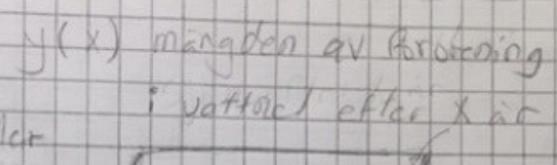 y(x) mängden av förorening
i vattnet efter x år